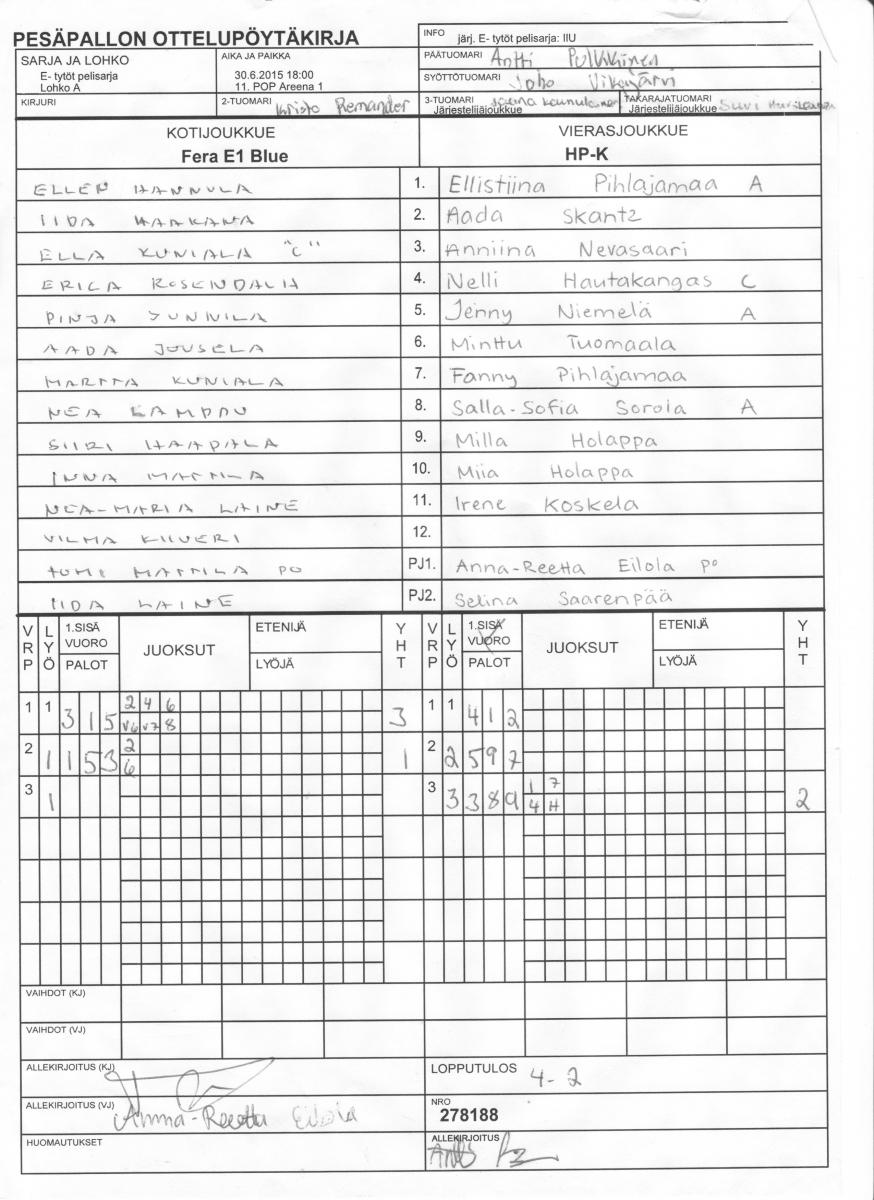 PESÄPALLON OTTELUPÖYTÄKIRJA
INFO järj. E- tytöt pelisarja: IIU
SARJA JA LOHKO
E- tytöt pelisarja
Lohko A
AIKA JA PAIKKA
30.6.2015 18:00
11. POP Areena 1
PÄÄTUOMARI Antti Pulkkinen
SYÖTTÖTUOMARI Joho
KIRJURI
2-TUOMARI Kristo Remander
3-TUOMARI
Järjestelijäjoukkue
TAKARAJATUOMARI
Järjestelijäjoukkue Suvi
KOTIJOUKKUE
Fera E1 Blue
VIERASJOUKKUE
HP-K
ELLEN HANNULA 1. Ellistiina Pihlajamaa A
IIDA HAAKANA 2. Aada Skantz
ELLA KUNIALA "C" 3. Anniina Nevasaari
ERICA ROSENDAHL 4. Nelli Hautakangas C
PINJA SUNNILA 5. Jenny Niemelä A
AADA JUUSELA 6. Minttu Tuomaala
MARTTA KUNIALA 7. Fanny Pihlajamaa
NEA LAMPPU 8. Salla-Sofia Sorola A
SIIRI HAAPALA 9. Milla Holappa
INNA MATTILA 10. Miia Holappa
NEA-MARIA LAINE 11. Irene Koskela
VILMA KIIVERI 12.
MATTILA PO PJ1. Anna-Reetta Eilola PO
IIDA LAINE PJ2. Selina Saarenpää
VRP LYÖ 1.SISÄ VUORO PALOT JUOKSUT ETENIJÄ LYÖJÄ YHT VRP LYÖ 1.SISÄ VUORO PALOT JUOKSUT ETENIJÄ LYÖJÄ YHT
1 1 3 1 5 2 4 6 3 1 1 4 1 2
V6 V7 8
2 1 1 5 3 2 1 2 2 5 9 7
6
3 1 3 3 3 8 9 1 7 2
4 H
VAIHDOT (KJ)
VAIHDOT (VJ)
ALLEKIRJOITUS (KJ)
LOPPUTULOS 4-2
ALLEKIRJOITUS (VJ) Anna-Reetta Eilola
NRO
278188
HUOMAUTUKSET
ALLEKIRJOITUS